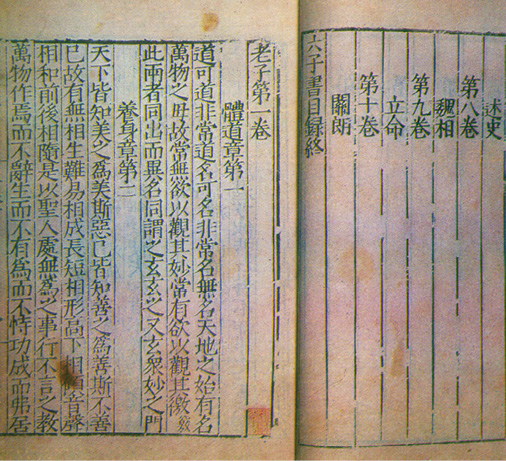 述史
第八卷
魏相
第九卷
立命
第十卷
關朗
六子書目録終
老子第一卷
體道章第一
道可道非常道名可名非常名無名天地之始有名
萬物之母故常無欲以觀其妙常有欲以觀其徼
此兩者同出而異名同謂之玄玄之又玄衆妙之門
養身章第二
天下皆知美之為美斯惡已皆知善之為善斯不善
已故有無相生難易相成長短相形高下相音聲
相和前後相隨是以聖人處無為之事行不言之教
萬物作焉而不辭生而不有為而不恃功成而弗居